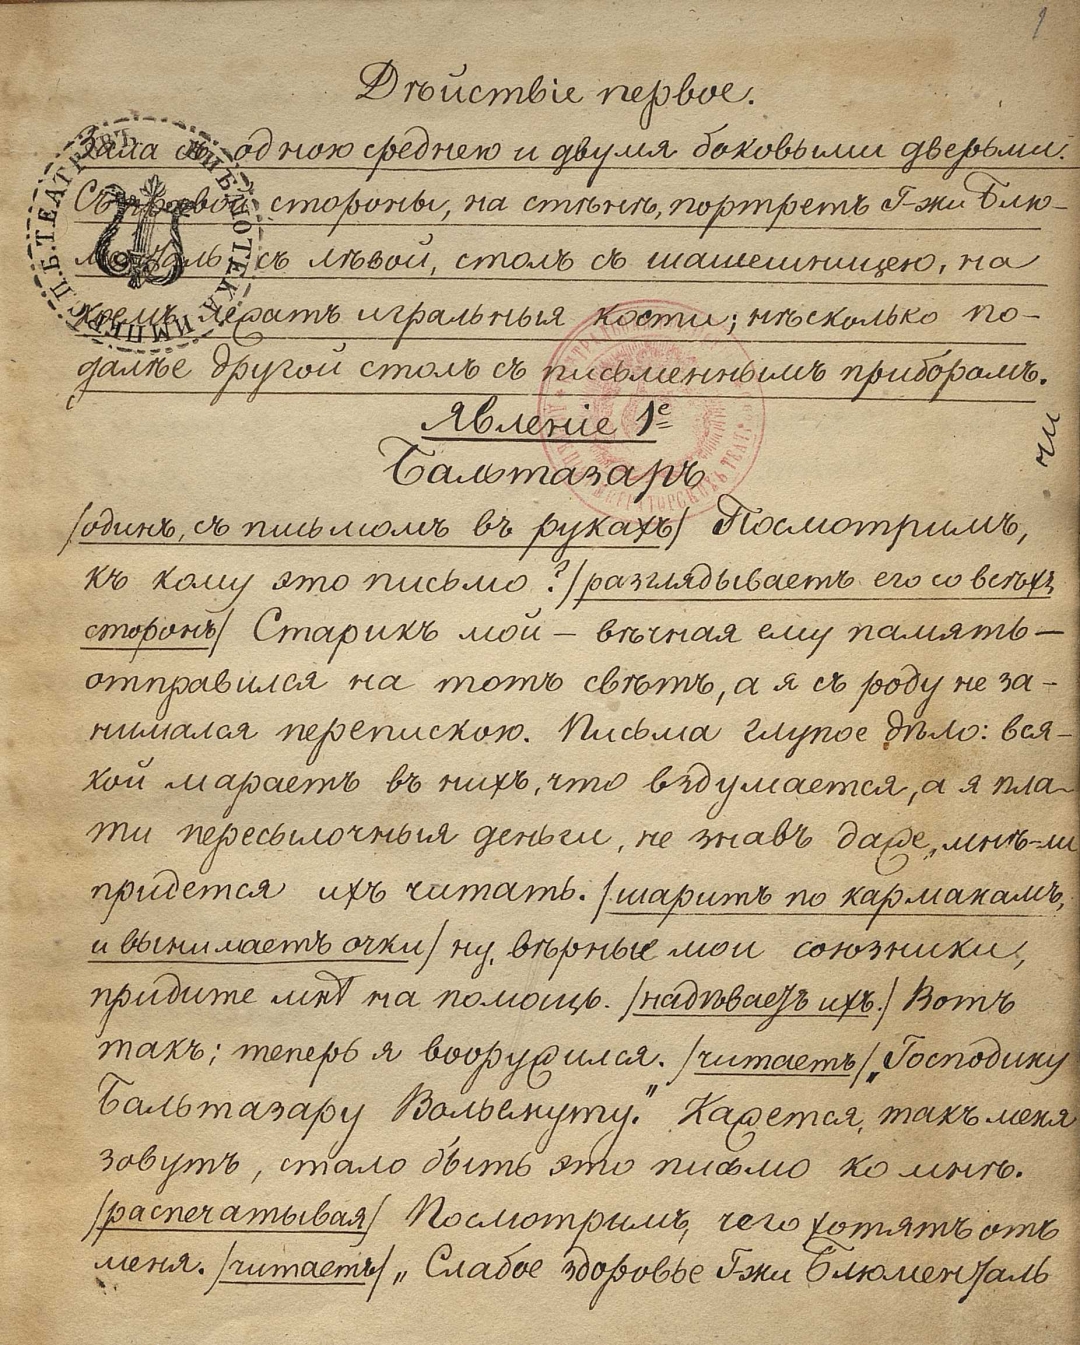 Дѣйствіе первое.
Зала съ одною среднею и двумя боковыми дверьми.
Съ правой стороны, на стѣнѣ, портретъ Г-жи Блю-
менталь, съ лѣвой, столъ съ шашешницею, на
коемъ лежатъ игральныя кости; нѣсколько по-
далѣе другой столъ съ письменнымъ приборомъ.
Явленіе 1е
Бальтазаръ
/одинъ, съ письмомъ въ рукахъ/ Посмотримъ,
къ кому это письмо? /разглядываетъ его со всѣхъ
сторонъ/ Старикъ мой – вѣчная ему память –
отправился на тотъ свѣтъ, а я съ роду не за-
нимался перепискою. Письма глупое дѣло: вся-
кой мараетъ въ нихъ, что вздумается, а я пла-
ти пересылочныя деньги, не знавъ даже, мнѣ-ли
придется ихъ читать. /шаритъ по карманамъ,
и вынимаетъ очки/ ну, вѣрные мои союзники,
придите мнѣ на помощь. /надѣваетъ ихъ./ Вотъ
такъ; теперь я вооружился. /читаетъ/ „Господину
Бальтазару Вольгемуту." Кажется, такъ меня
зовутъ, стало быть это письмо ко мнѣ.
/распечатывая/ Посмотримъ, чего хотятъ отъ
меня. /читаетъ/ „Слабое здоровье Г-жи Блюменталь
БИБЛІОТЕКА ИМПЕР. С.П.Б. ТЕАТРОВЪ